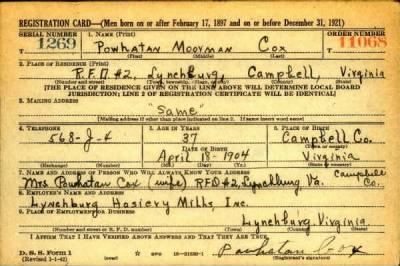 REGISTRATION CARD—(Men born on or after February 17, 1897 and on or before December 31, 1921)
SERIAL NUMBER 1. NAME ORDER NUMBER
1269 Powhatan Moorman Cox 11068
(First) (Middle) (Last)
2. PLACE OF RESIDENCE (Print)
R.F.D #2, Lynchburg, Campbell, Virginia
(Number and street) (Town, township, village, or city) (County) (State)
[THE PLACE OF RESIDENCE GIVEN ON THE LINE ABOVE WILL DETERMINE LOCAL BOARD
JURISDICTION; LINE 2 OF REGISTRATION CERTIFICATE WILL BE IDENTICAL]
3. MAILING ADDRESS
"Same"
[Mailing address if other than place indicated on line 2. If same insert word same]
4. TELEPHONE 5. AGE IN YEARS 6. PLACE OF BIRTH
568-J-4 37 Campbell Co.
DATE OF BIRTH (Town or county)
April 18-1904 Virginia
(Exchange) (Number) (Mo.) (Day) (Yr.) (State or country)
7. NAME AND ADDRESS OF PERSON WHO WILL ALWAYS KNOW YOUR ADDRESS Campbell
Mrs. Powhatan Cox (wife) RFD #2, Lynchburg Va. Co.
8. EMPLOYER'S NAME AND ADDRESS
Lynchburg Hosiery Mills, Inc.
9. PLACE OF EMPLOYMENT OR BUSINESS
Lynchburg Virginia.
(Number and street or R. F. D. number) (Town) (County) (State)
I AFFIRM THAT I HAVE VERIFIED ABOVE ANSWERS AND THAT THEY ARE TRUE.
D. S. S. Form 1 Powhatan Cox
(Revised 1-1-42) (over) (Registrant's signature)